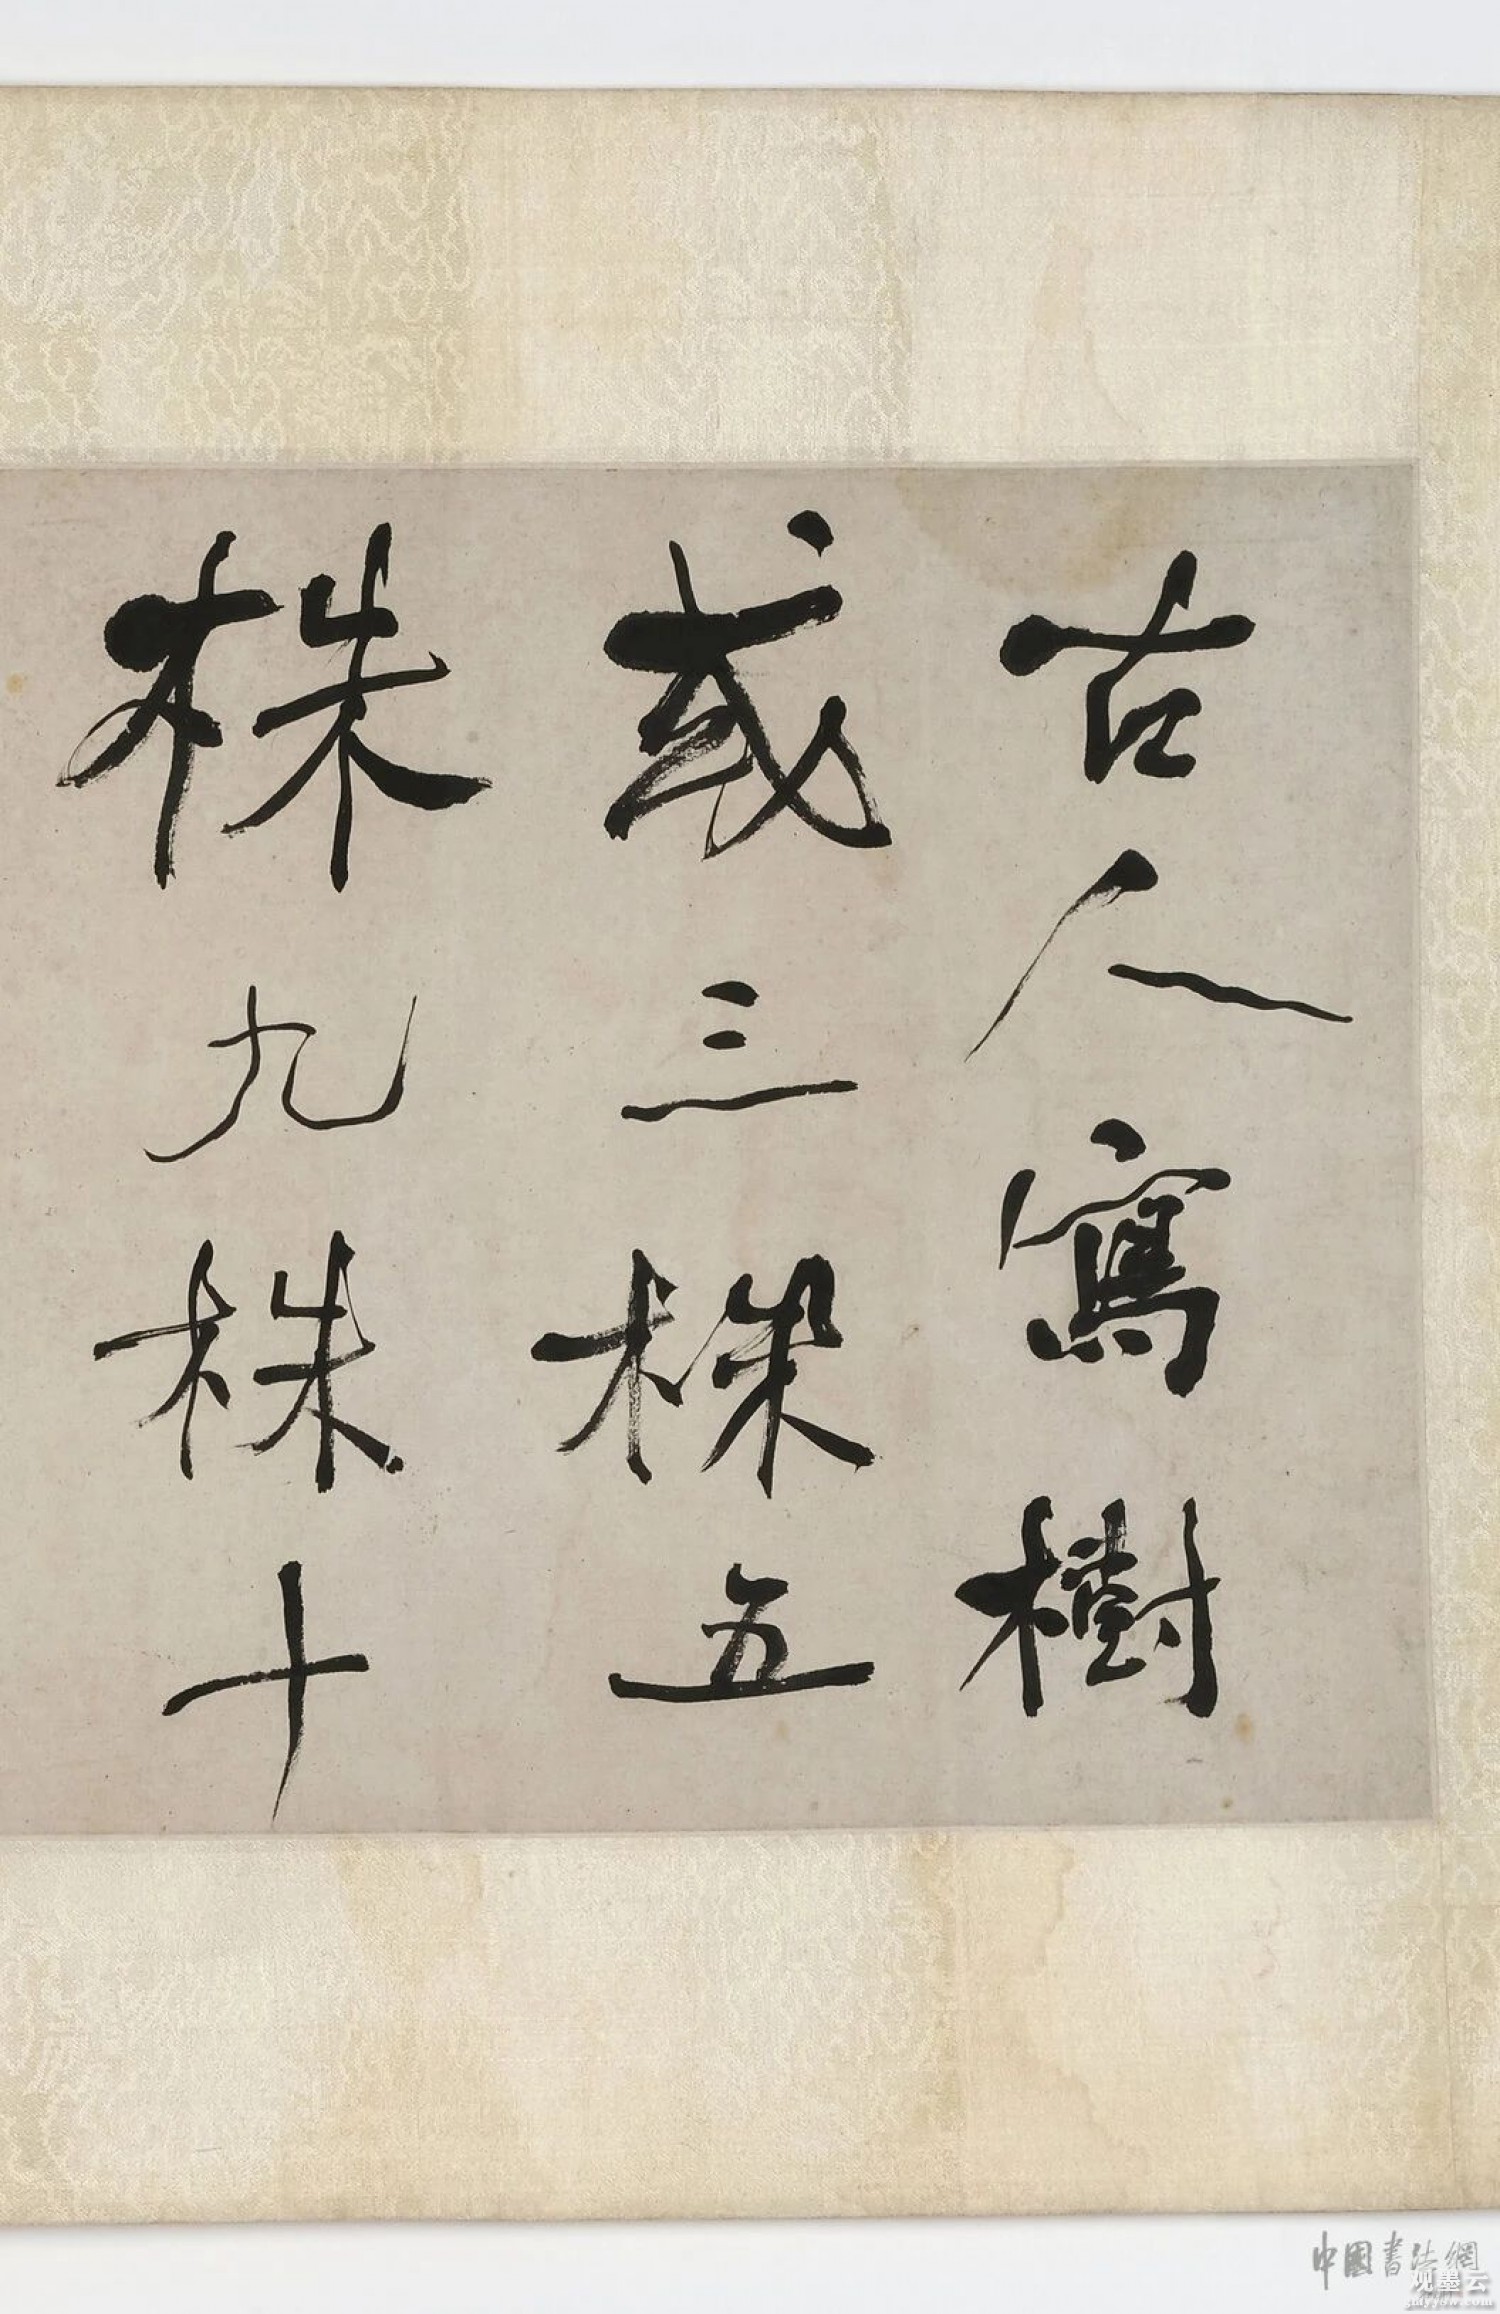 古人寫樹
或三株五
株九株十
中國書法網
观墨云